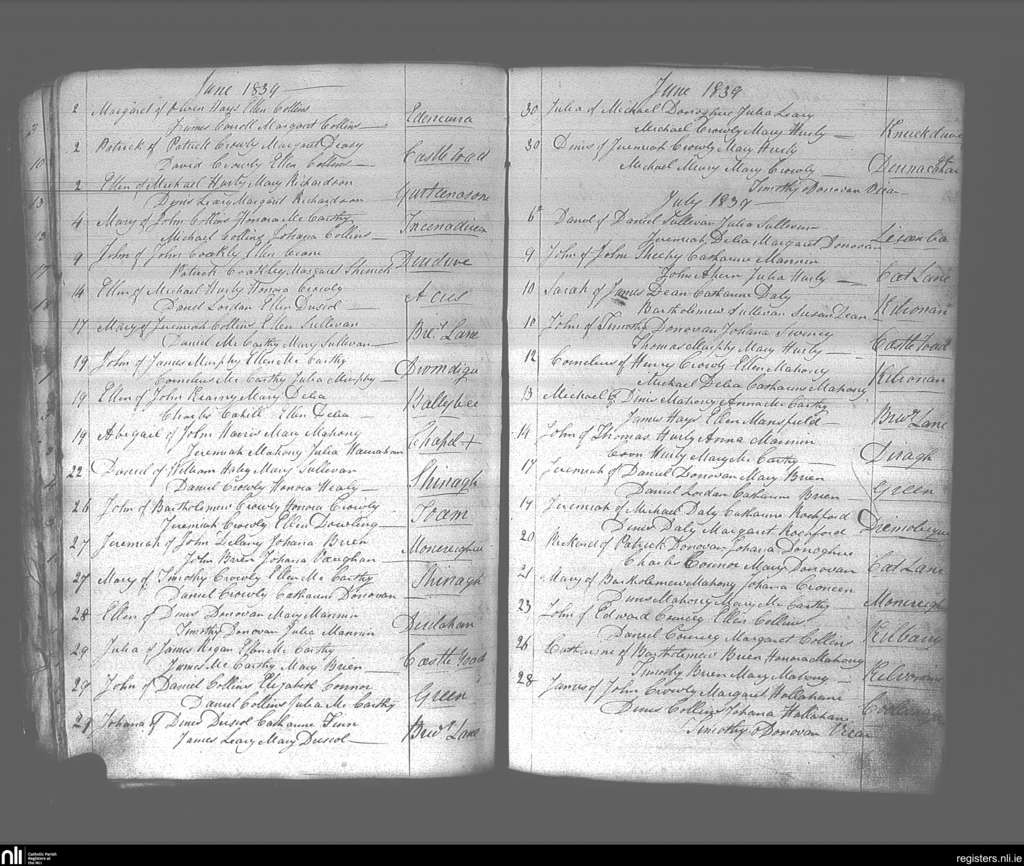 June 1839
2 Margaret of Owen Hays Ellen Collins
James Margaret Collins
Edencurra
2 Patrick of Patrick Crowly Margaret Deasy
David Crowly Ellen Collins
Castle road
2 Ellen of Michael Hurly Mary Richardson
Denis Leary Margaret Richardson
4 Mary of John Collins Honora Mc Carthy
Michael Collins Johana Collins
9 John of John Coakly Ellen
Patrick Coakley Margaret
14 Ellen of Michael Hurly Honora Crowly
Daniel Lordan Ellen Driscol
Acres
17 Mary of Jeremiah Collins Ellen Sullivan
Daniel Mc Carthy Mary Sullivan
Brew Lane
19 John of James Murphy Ellen Mc Carthy
Cornelius Mc Carthy Julia Murphy
19 Ellen of John Kearny Mary Delea
Charles Cahill Ellen Delea
19 Abigail of John Mary Mahony
Jeremiah Mahony Julia
Chapel +
22 Daniel of William Haly Mary Sullivan
Daniel Crowly Honora Healy
Shinagh
26 John of Bartholemew Crowly Honora Crowly
Jeremiah Crowly Ellen Dowling
Toam
27 Jeremiah of John Delany Johana Brien
John Brien Johana Vaughan
27 Mary of Timothy Crowly Ellen Mc Carthy
Daniel Crowly Catharine Donovan
Shinagh
28 Ellen of Denis Donovan Mary Mannin
Timothy Donovan Julia Mannin
29 Julia of James Regan Ellen Mc Carthy
James Mc Carthy Mary Brien
Castle road
29 John of Daniel Collins Elizabeth Connor
Daniel Collins Julia Mc Carthy
Green
29 Johana of Denis Driscol Catharine Finn
James Leary Mary Driscol
Brew Lane
June 1839
30 Julia of Michael Donoghue Julia Leary
Michael Crowly Mary Hurly
30 Denis of Jeremiah Crowly Mary Hurly
Michael Mary Crowly
Timothy O Donovan
July 1839
6 Daniel of Daniel Sullivan Julia Sullivan
Jeremiah Delea Margaret Donovan
9 John of John Sheehy Catharine Mannin
John Ahern Julia Hurly
Cat Lane
10 Sarah of James Dean Catharine Daly
Bartholemew Sullivan Susan Dean
Kilronan
10 John of Timothy Donovan Johana Sweney
Thomas Murphy Mary Hurly
Castle road
12 Cornelius of Henry Crowly Ellen Mahony
Michael Delea Catharine Mahony
Kilronan
13 Michael of Denis Mahony Anna Mc Carthy
James Hays Ellen Mansfield
Brew Lane
14 John of Thomas Hurly Anna Mannin
Hurly Mary Mc Carthy
Diragh
17 Jeremiah of Daniel Donovan Mary Brien
Daniel Lordan Catharine Brien
Green
Jeremiah of Michael Daly Catharine Rochford
Denis Daly Margaret Rochford
20 of Patrick Donovan Johana Donoghue
Charles Connor Mary Donovan
Cat Lane
21 Mary of Bartholemew Mahony Johana
Denis Mahony Mary Mc Carthy
23 John of Edward Ellen Collins
Daniel Margaret Collins
26 Catharine of Bartholemew Brien Honora Mahony
Timothy Brien Mary Mahony
28 James of John Crowly Margaret Hallahan
Denis Collins Johana Hallahan
Timothy O Donovan
nli
Catholic Parish
Registers at
the NLI
registers.nli.ie